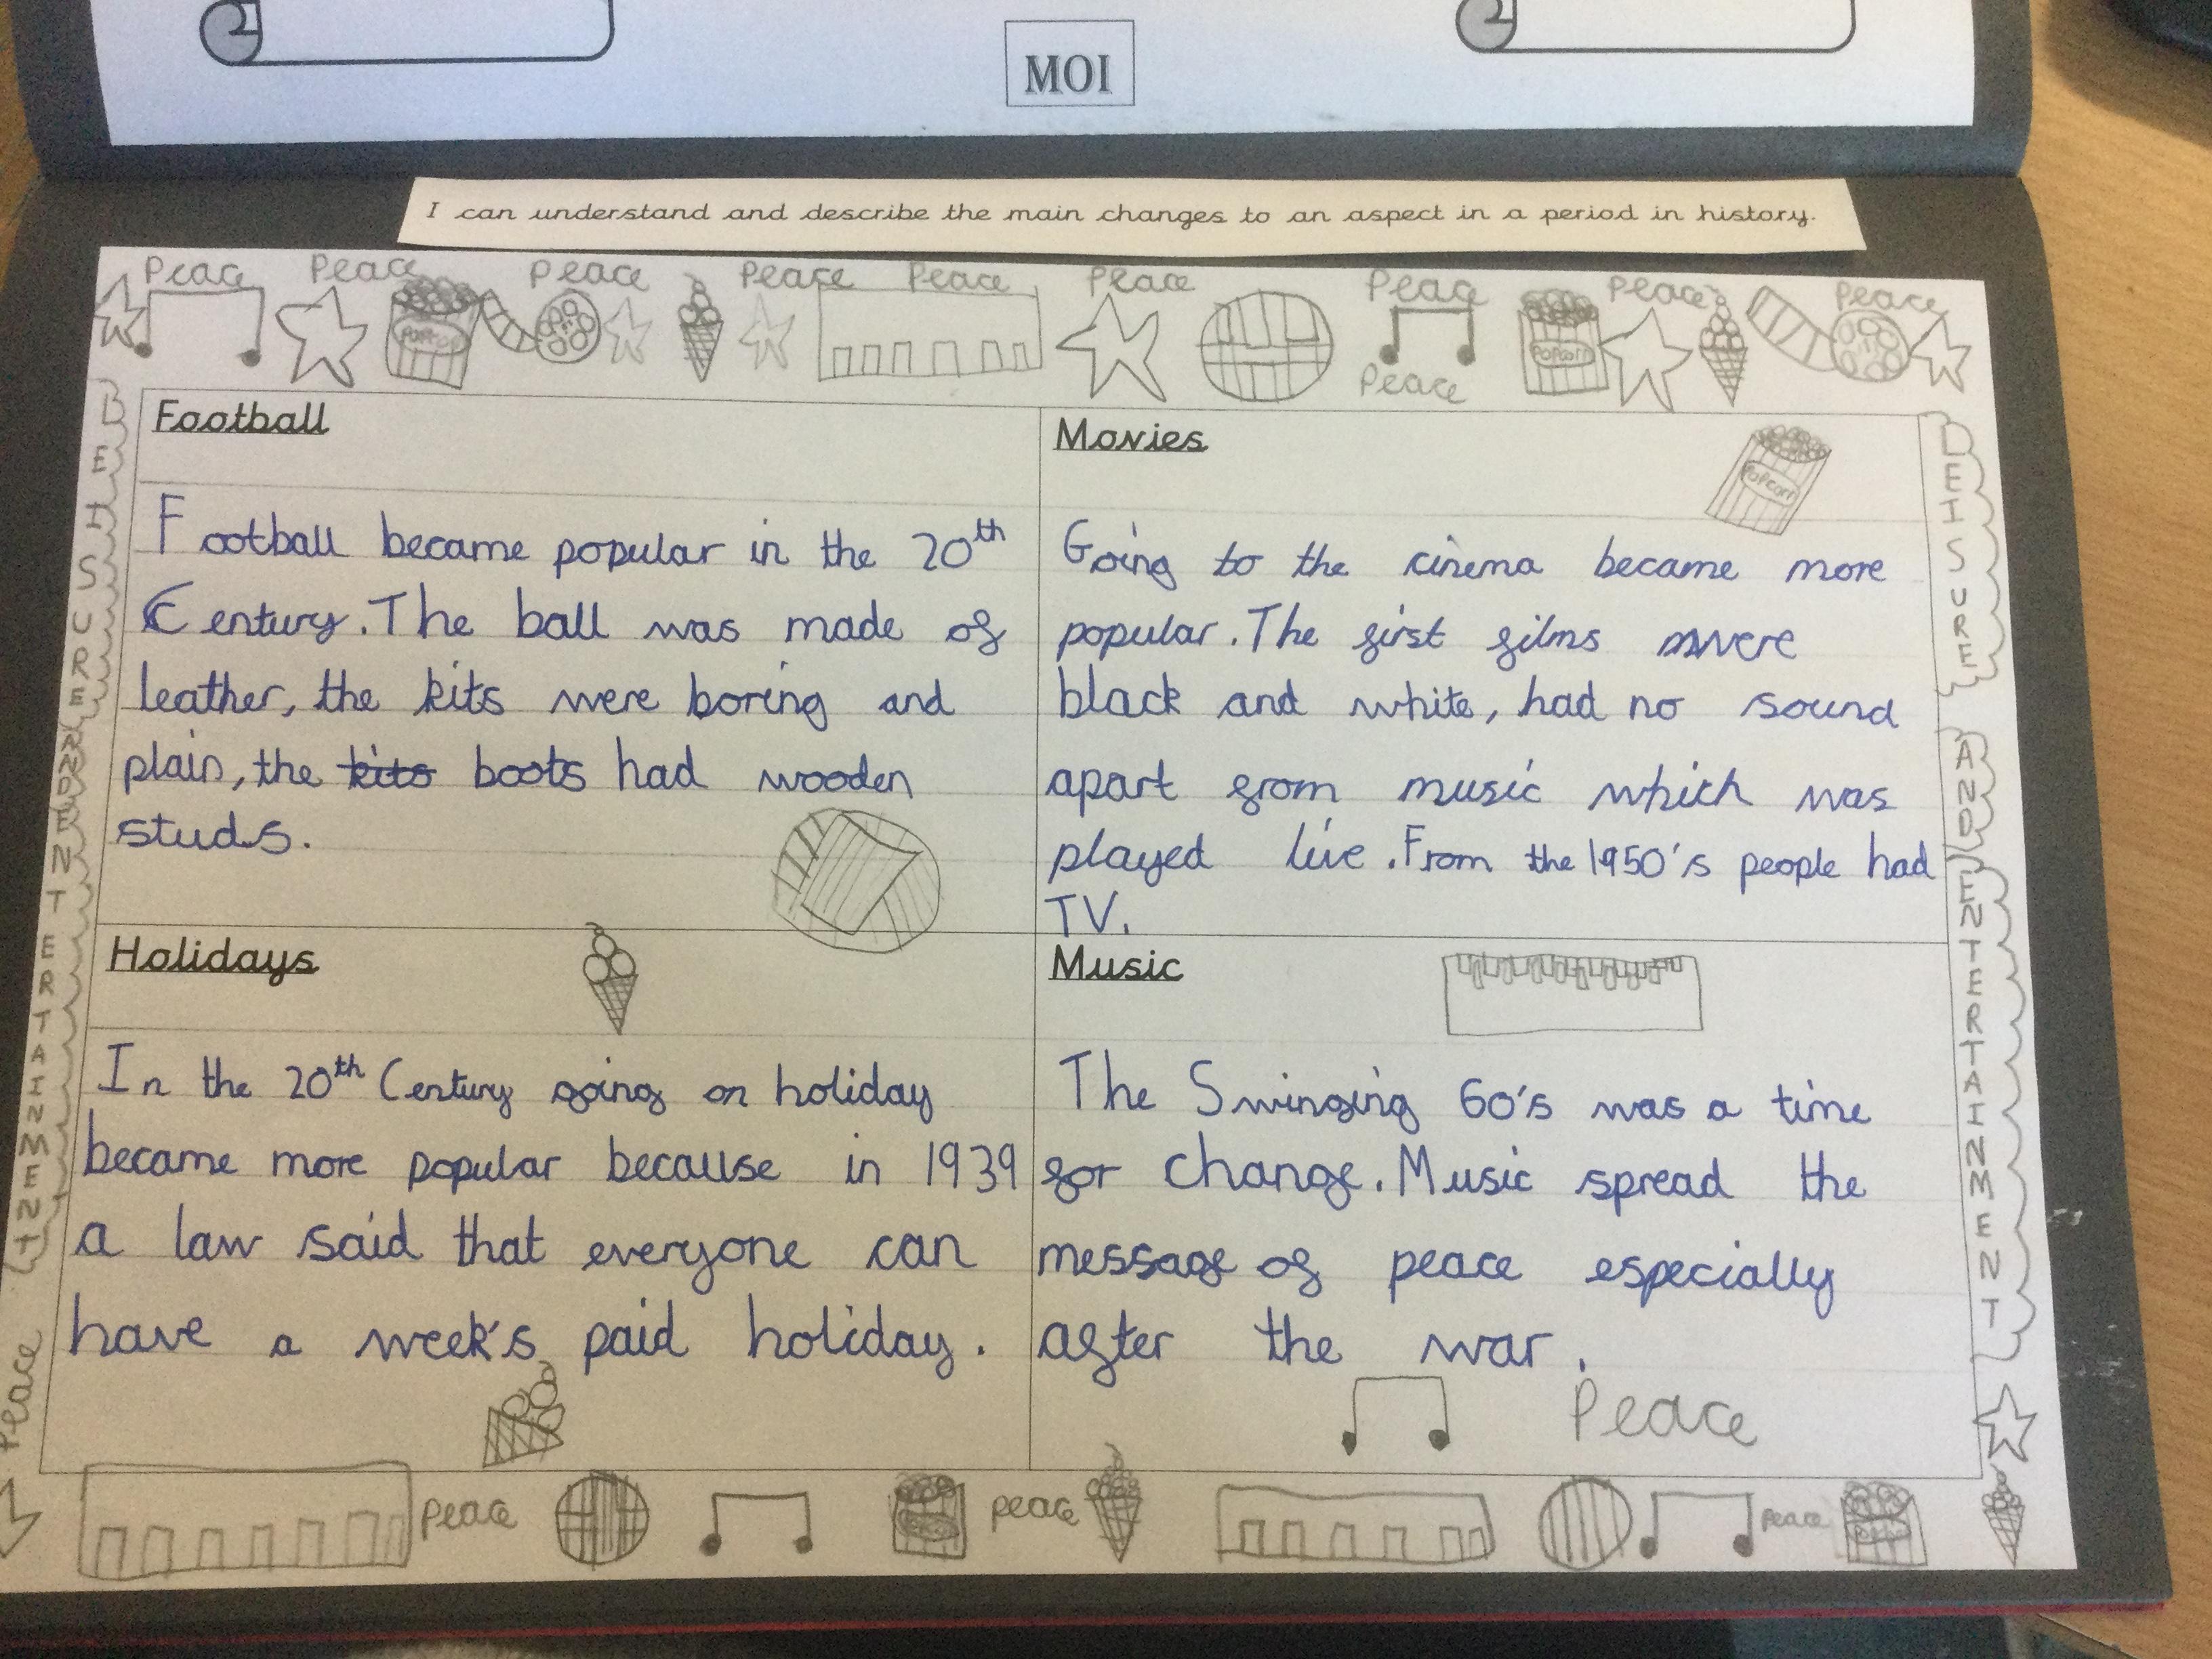 MOI
I can understand and describe the main changes to an aspect in a period in history.
Peace Peace Peace Peace Peace Peace Peace Peace Peace
Popcorn Peace Popcorn
LEISURE AND ENTERTAINMENT
Football
Football became popular in the 20th
Century. The ball was made of
leather, the kits were boring and
plain, the kits boots had wooden
studs.
Movies
Popcorn
Going to the cinema became more
popular. The first films were
black and white, had no sound
apart from music which was
played live. From the 1950's people had
TV.
LEISURE AND ENTERTAINMENT
Holidays
In the 20th Century going on holiday
became more popular because in 1939
a law said that everyone can
have a week's paid holiday.
Music
The Swinging 60's was a time
for change. Music spread the
message of peace especially
after the war.
Peace
Peace
Peace Peace Peace